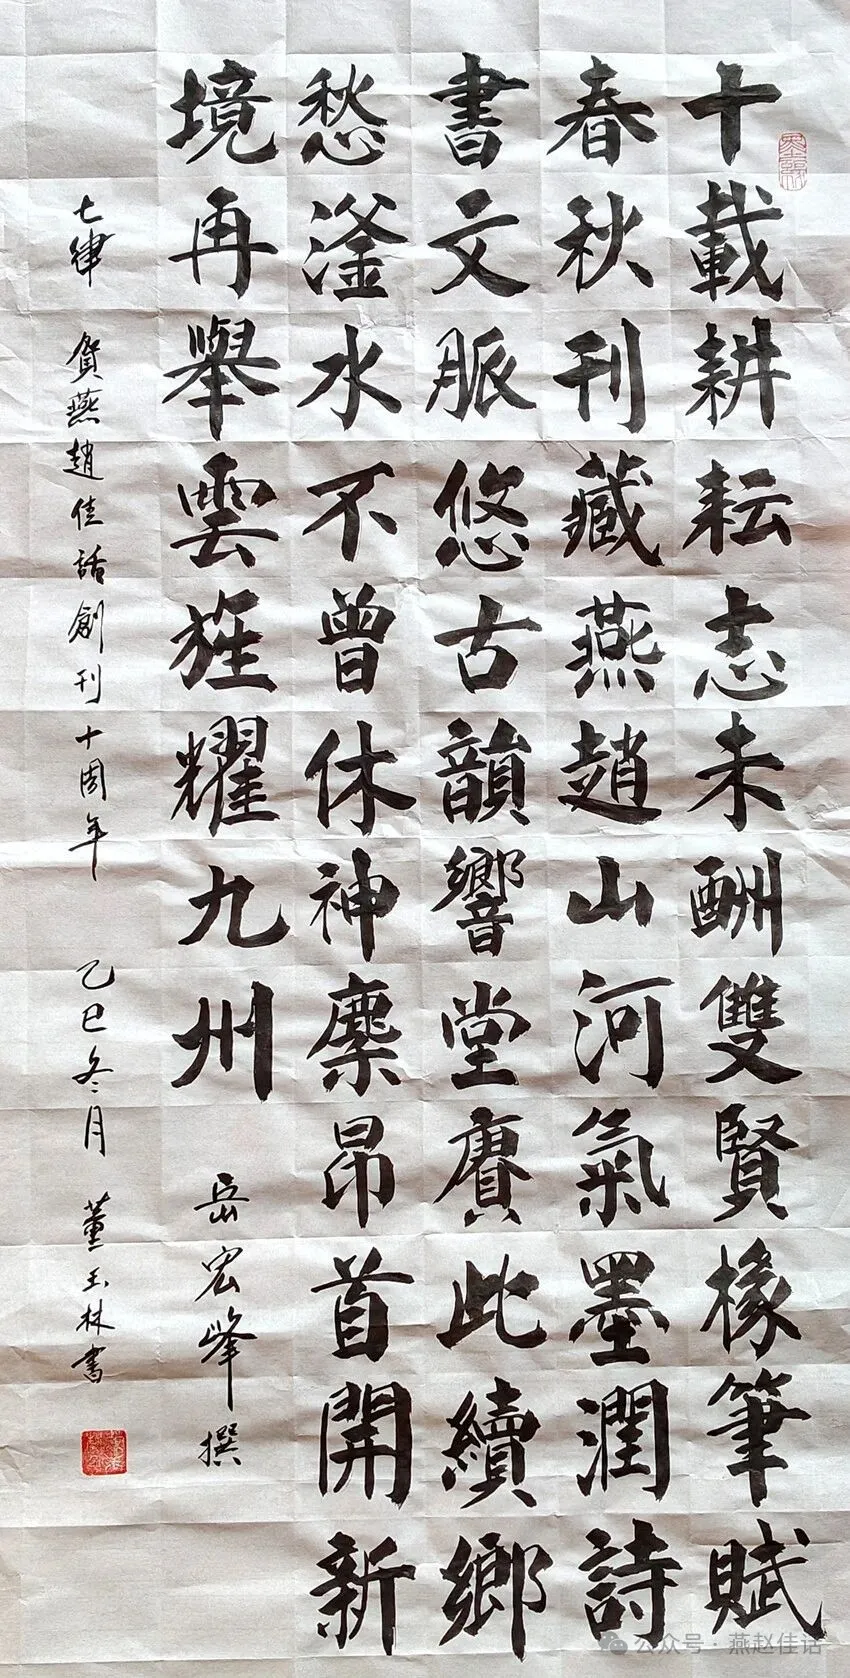 十載耕耘志未酬雙賢椽筆賦
春秋刊藏燕趙山河氣墨潤詩
書文脈悠古韻響堂賡此續鄉
愁滏水不曾休神麇昂首開新
境再舉雲旌耀九州
岳宏峰撰
七律 賀燕趙佳話創刊十周年 乙巳冬月 董玉林書
公众号·燕赵佳话